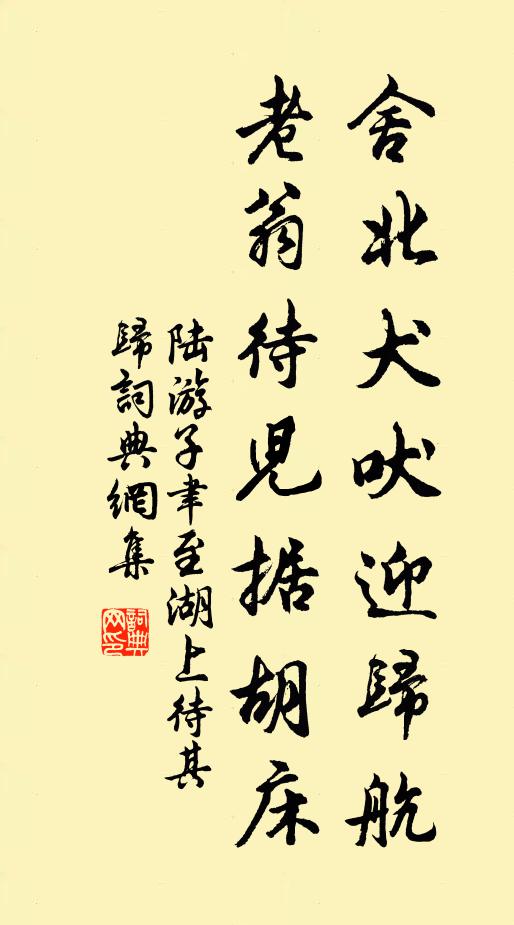 舍北犬吠迎歸航
老翁待兒据胡床
陆游子聿至湖上待其
歸詞典網集
詞典网印